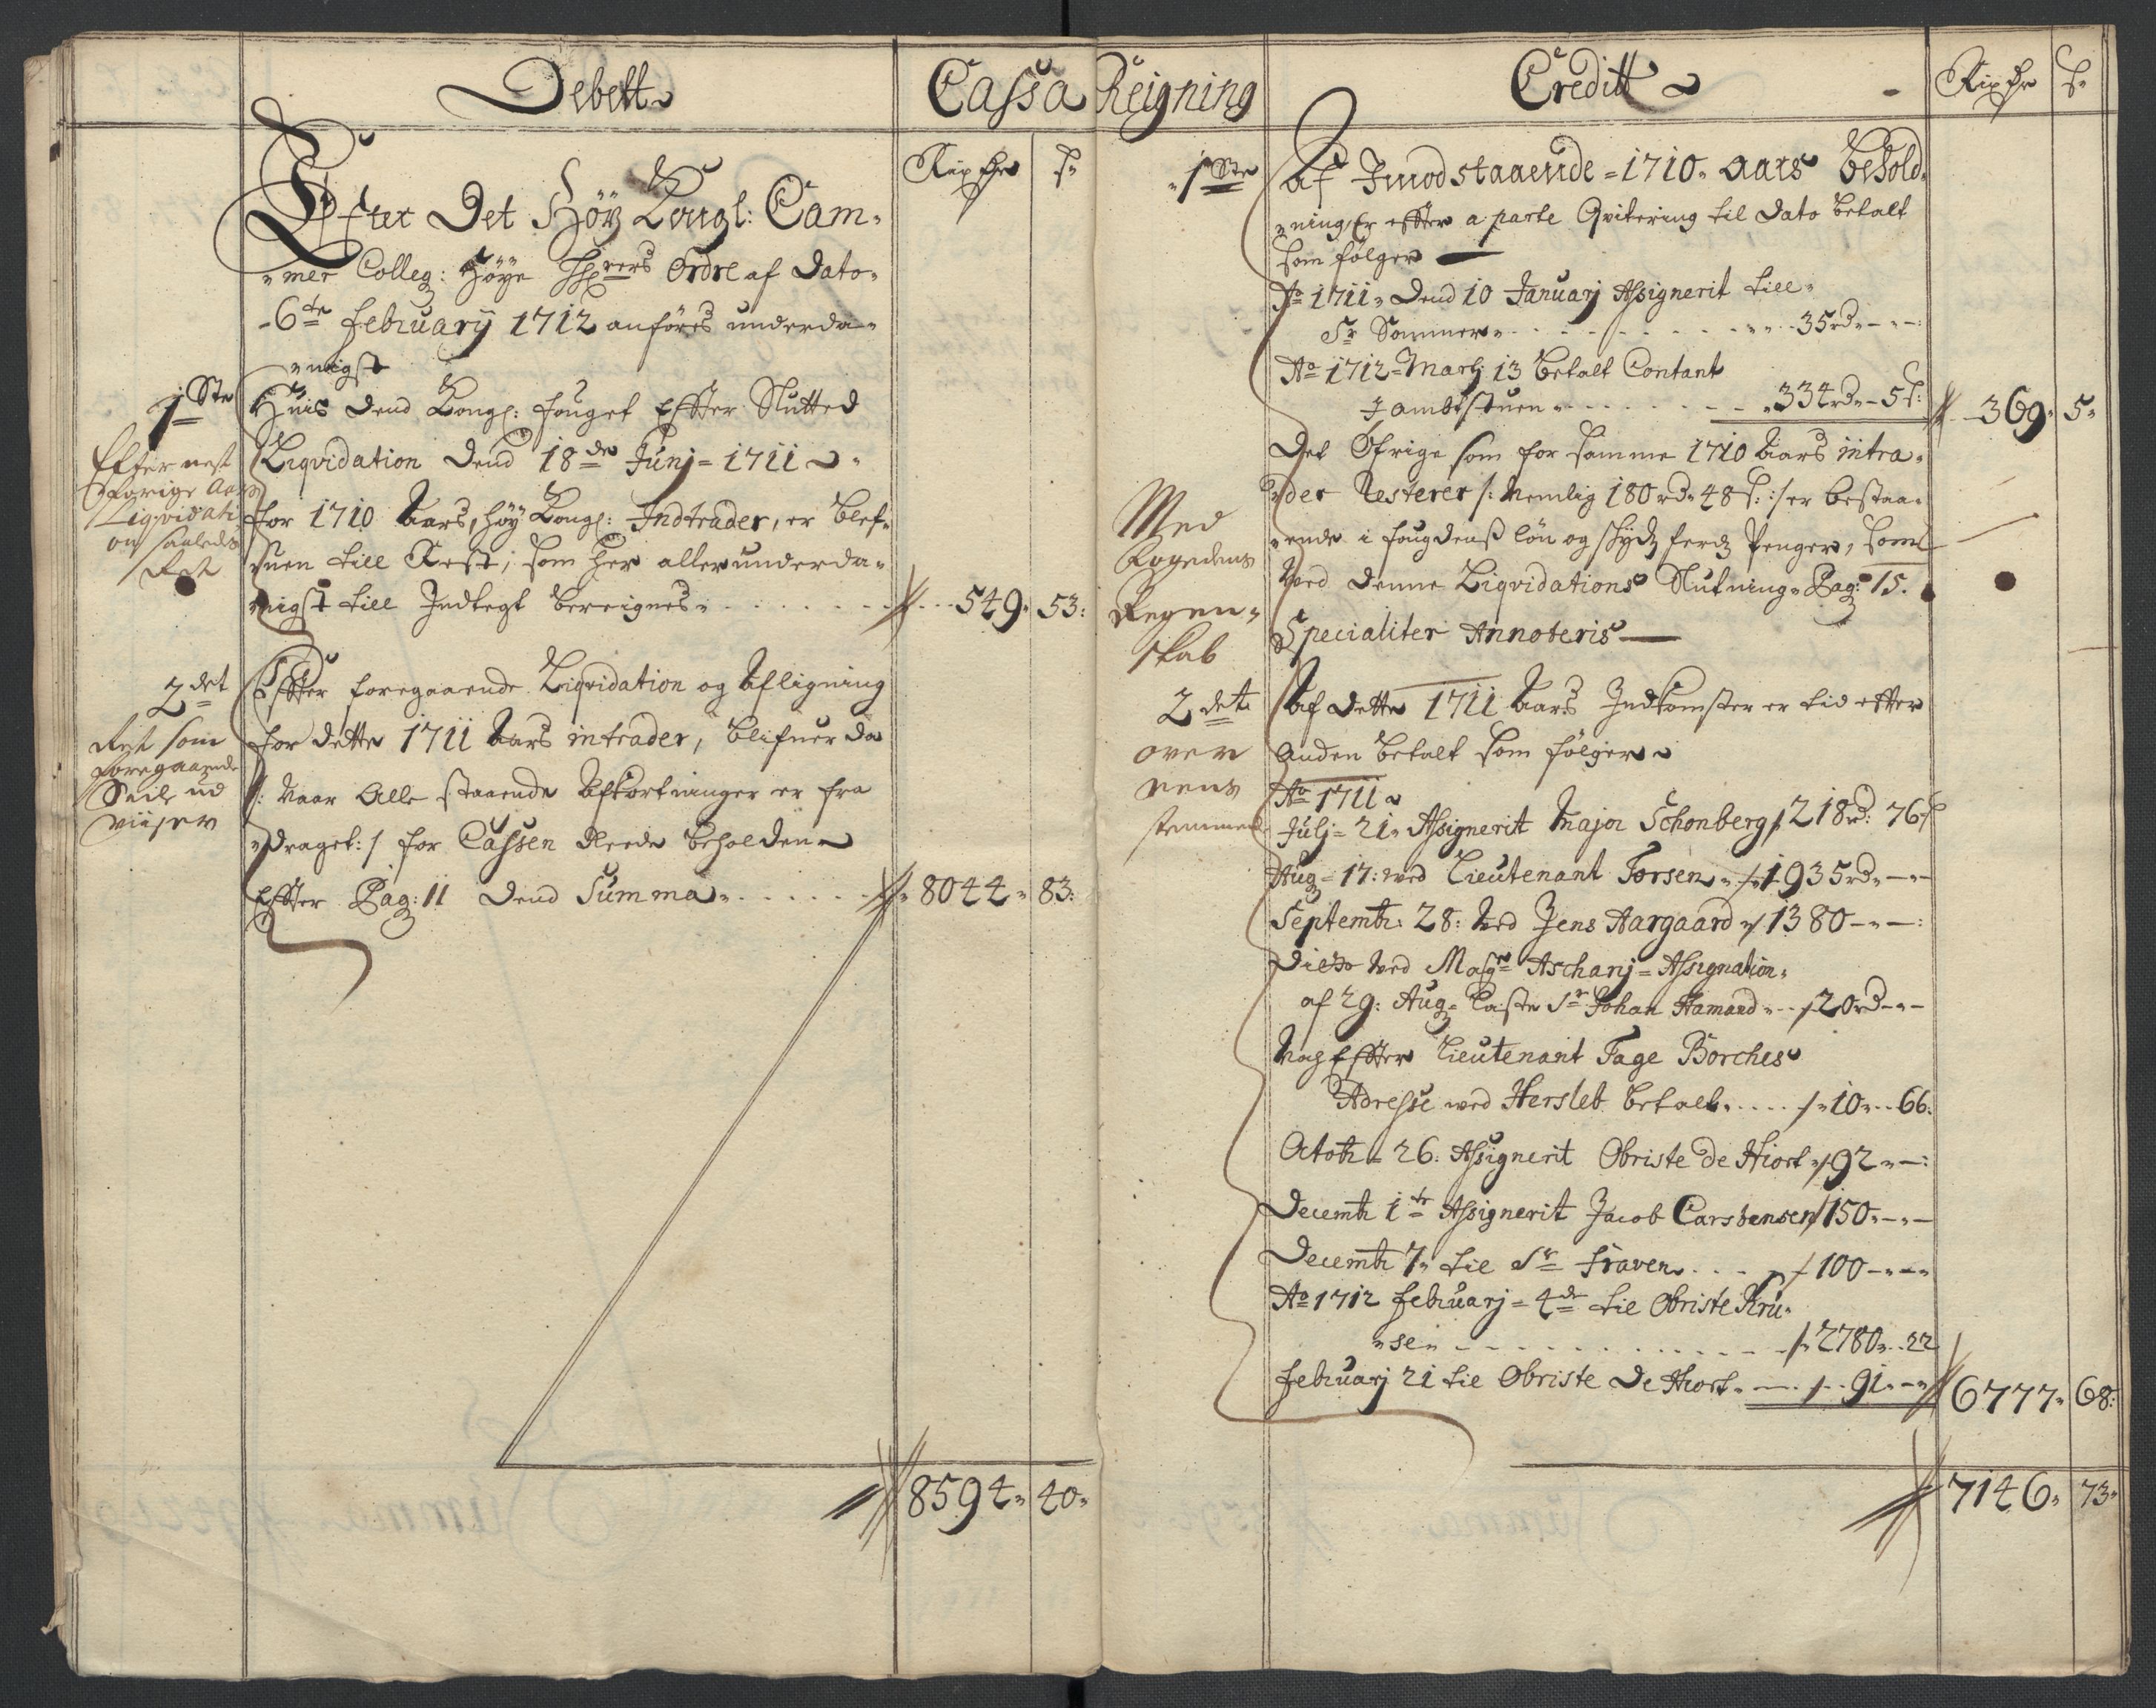 Debett
Cassa Reigning
Creditt
Rixdr
s
Rixdr
s
Efter Det Høy Kongl: Cam-
-mer Colleg: Høye Ordre af Dato-
-6te Februarij 1712 anføres underda-
-nigst
1ste
Huis Dend Kongl: Fouget Effter Slutted
Liqvidation Dend 18de Junj = 1711
for 1710 Aars, høy Kongl: Indtrader, er blef-
-uen till Rest, som her allerunderda-
nigst till Indtegt bereignes 549 53:
Effter nest
forige Aars
Liqvidati
on saaledes
Ret
2det
Effter foregaaende Liqvidation og Afligning
for dette 1711 Aars intrader, blifuer da
/: naar Alle staaende Afkortninger er fra
draget:/ for Cassen Reede beholden
Effter Pag: 11 Dend Summa 8044 83:
Ret som
foregaaende
Seile ud
viiser
8594 40
1ste
Af Imodstaaende 1710 Aars behold-
-ning, Er effter a parte Qvitering til Dato betalt
som følger
Ao 1711 Dend 10 Januarj Assignerit till
Sr Sommer 35rd
Ao 1712 Martj 13 betalt Contant
I ambtstuen 334rd 5s: 369 5
Det Øfrige som for samme 1710 Aars intra-
-der Resterer /: Nemlig 180rd 48s: :/ er bestaa-
-ende i fougdenss løn og skydtzferdz Penger, som
ved denne Liqvidations Slutning Pag: 15.
Specialiter Annoteris
Med
Fogedens
Regen-
skab
2det
Af dette 1711 Aars Indkomster er tid efter
anden betalt som følger
over
eens
stemmende
Ao 1711
Julj 21 Assignerit Major Schonberg 218rd: 76s
Aug 17: ved Lieutenant Torsen 1935rd
Septembr: 28: ved Jens Aargaard 1380
Dito ved Aschanj Assignation
af 29: Aug Sr Johan Hamand 20rd
Nok Effter Lieutenant Tage Borches
Adresse ved Hersleb betalt 10 66
Octobr 26. Assignerit Obriste de Hiort 92
Decembr 1te Assignerit Jacob Carstensen 150
Decembr 7 til Sr Fraven 100
Ao 1712 Februarj 4de til Obriste Kru-
-se 2780 22
Februarj 21 til Obriste De Hiort 91 6777 68:
7146 73